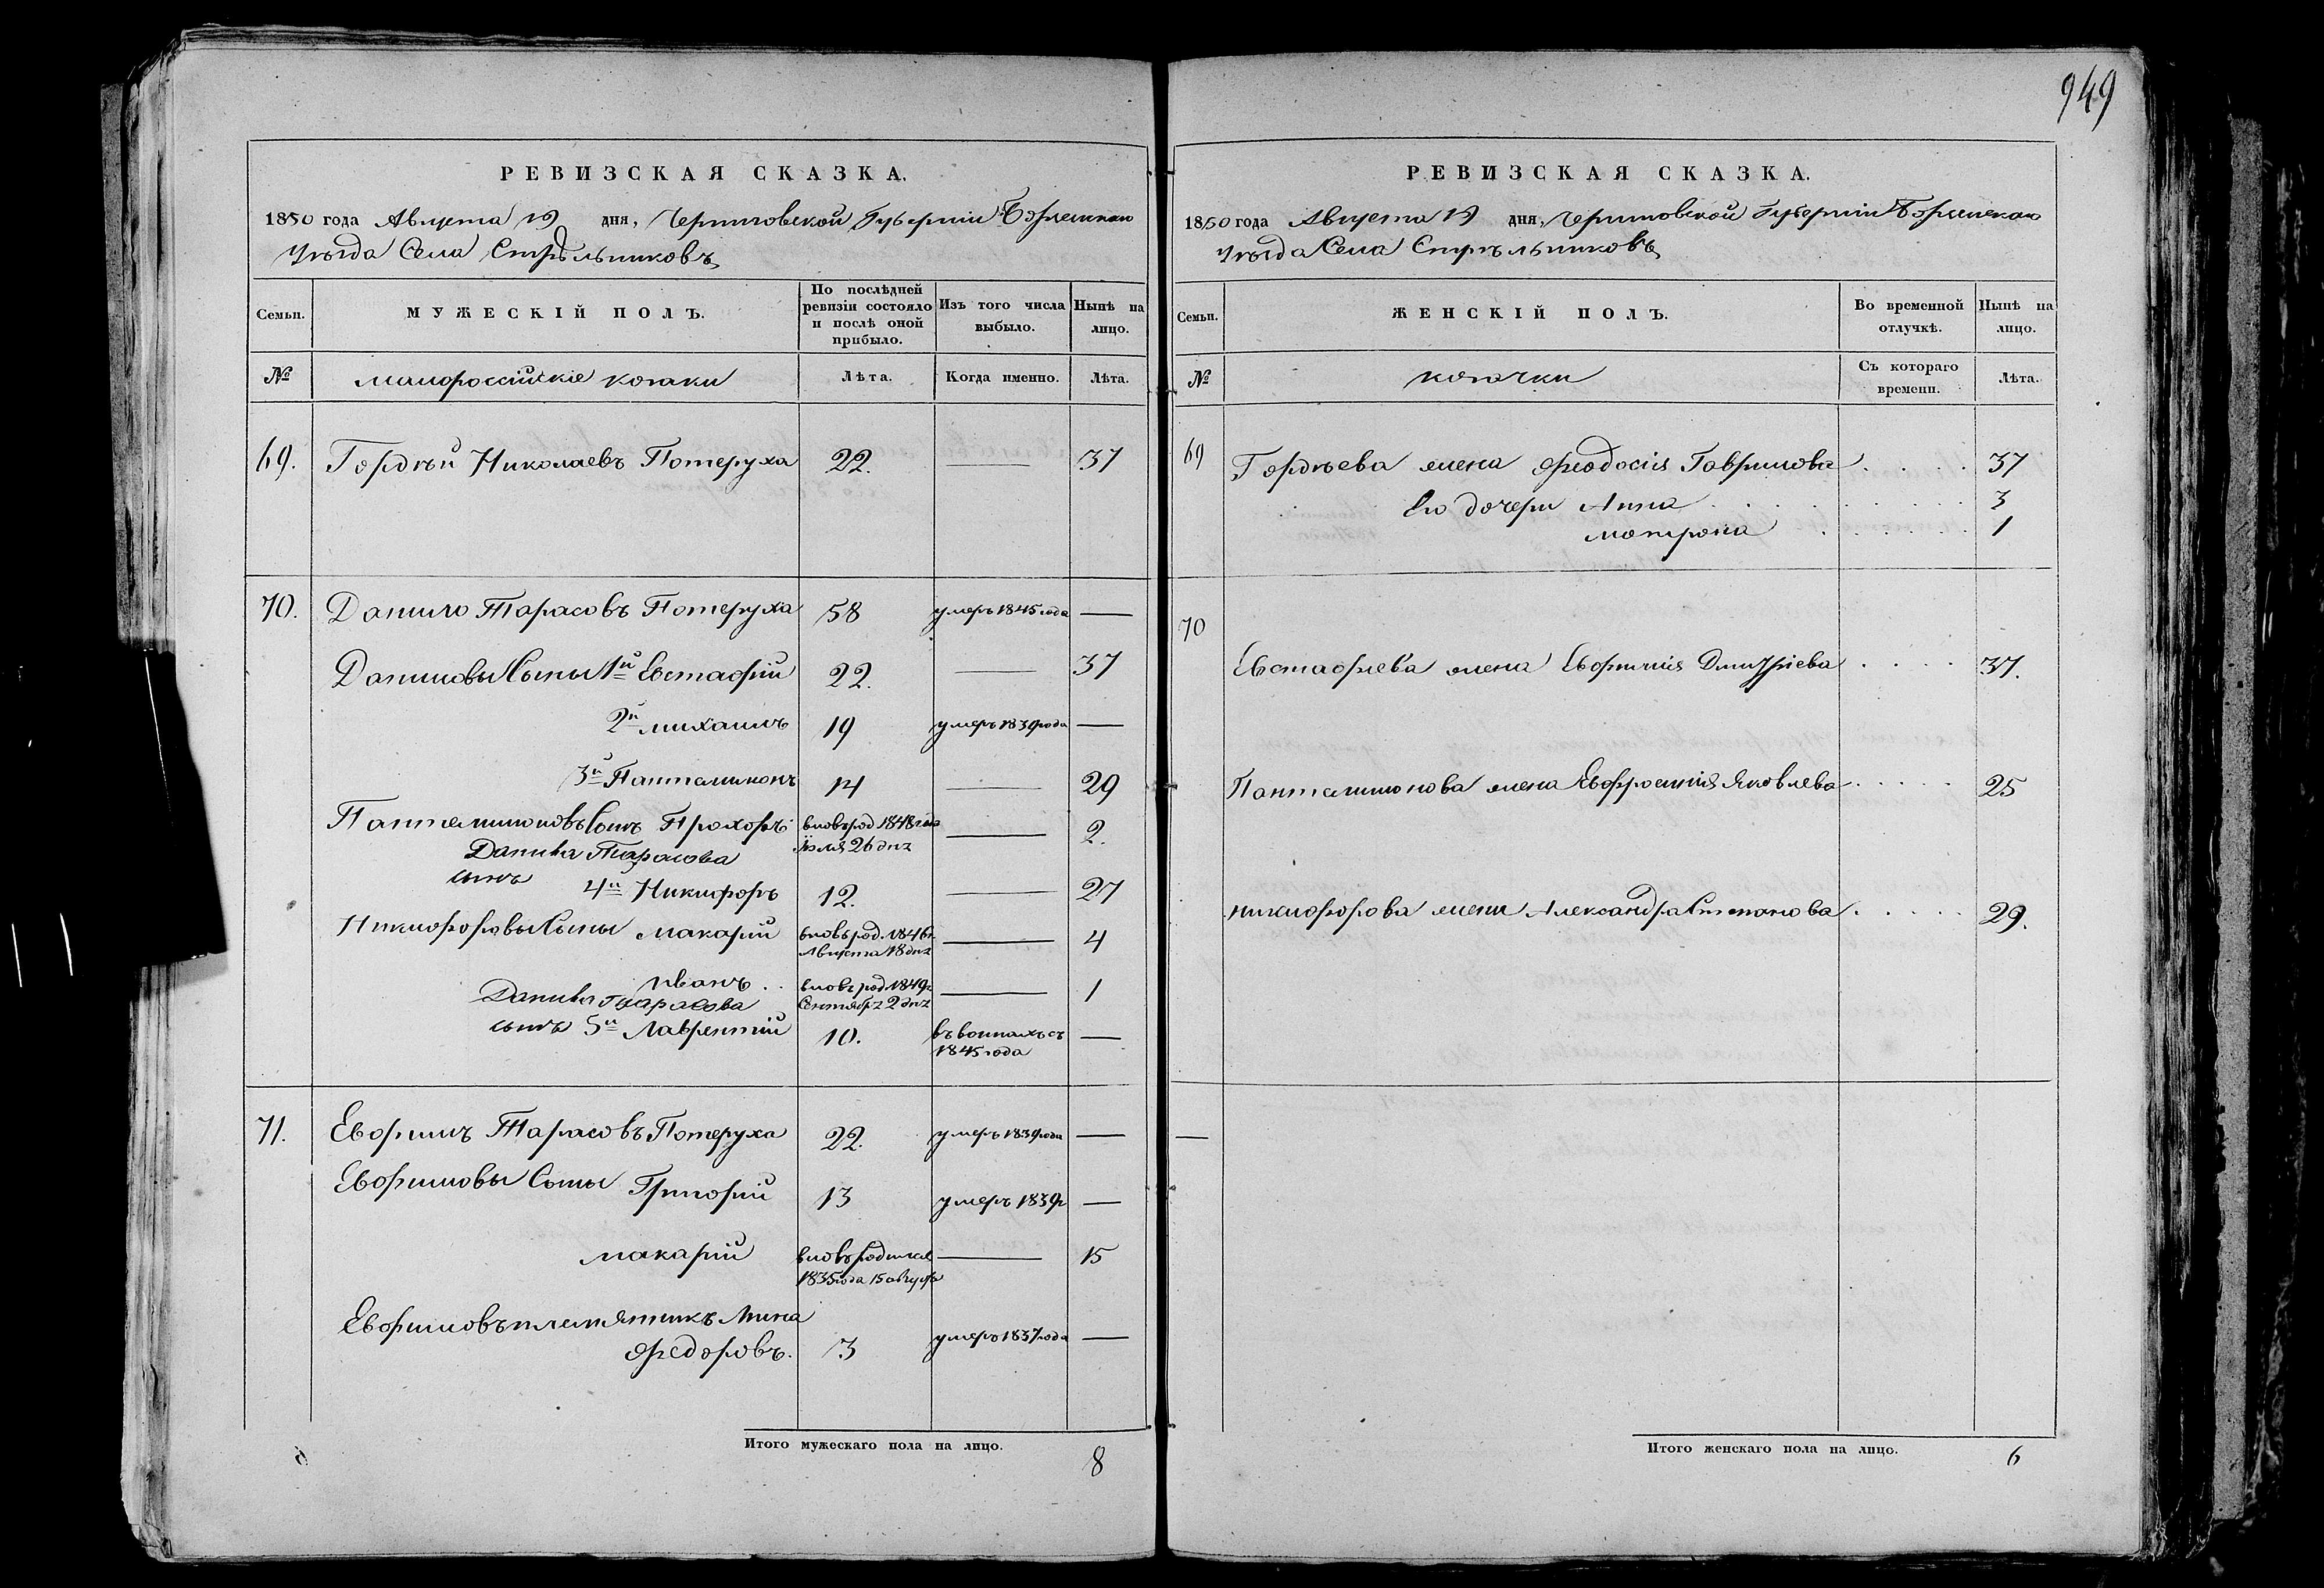 949
РЕВИЗСКАЯ СКАЗКА.
1850 года Августа 19 дня, Черниговской Губерніи Борзенскаго
Уѣзда Села Стрѣльниковъ
Семьи.
МУЖЕСКІЙ ПОЛЪ.
По послѣдней ревизіи состояло и послѣ оной прибыло.
Изъ того числа выбыло.
Нынѣ на лицо.
№
малороссійскіе козаки
Лѣта.
Когда именно.
Лѣта.
69. Гордѣй Николаевъ Потеруха 22. — 37
70. Данило Тарасовъ Потеруха 58 умеръ 1845 года —
Даниловы Сыны 1й Евстафій 22. — 37
2й михаилъ 19 умеръ 1839 года —
3й Панталимонъ 14 — 29
Панталимоновъ Сынъ Прохоръ вновь род 1848 года — 2.
Іюля 26 дня
Данила Тарасова
сынъ 4й Никифоръ 12. — 27
Никифоровы Сыны макарій вновь род. 1846 г. — 4
Августа 18 дня
иванъ вновь род. 1849 г. — 1
Сентября 2 дня
Данила Тарасова
сынъ 5й Лаврентій 10. въ воинахъ съ —
1845 года
71. Евфимъ Тарасовъ Потеруха 22. умеръ 1839 года —
Евфимовы Сыны Григорій 13 умеръ 1839 г —
макарій вновь родился — 15
1835 года 15 августа
Евфимовъ племянникъ Мина
Федоровъ. 3 умеръ 1837 года —
Итого мужескаго пола на лицо. 8
РЕВИЗСКАЯ СКАЗКА.
1850 года Августа 19 дня, Черниговской Губерніи Борзенскаго
Уѣзда Села Стрѣльниковъ
Семьи.
ЖЕНСКІЙ ПОЛЪ.
Во временной отлучкѣ.
Нынѣ на лицо.
№
козачки
Съ котораго времени.
Лѣта.
69 Гордѣева жена Феодосія Гаврилова 37
Его дочери Анна 3
мотрона 1
70
Евстафіева жена Евфимія Дмитріева 37.
Панталимонова жена Евфросинія Яковлева 25
никифорова жена Александра Степанова 29.
—
Итого женскаго пола на лицо. 6